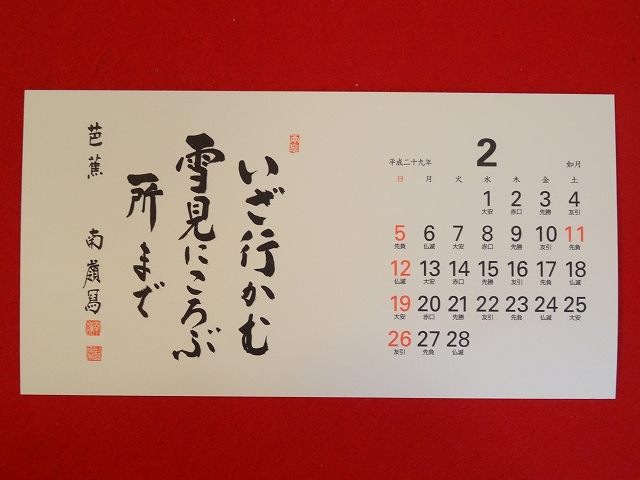 平成二十九年 2 如月
日 月 火 水 木 金 土
1 2 3 4
大安 赤口 先勝 友引
5 6 7 8 9 10 11
先負 仏滅 大安 赤口 先勝 友引 先負
12 13 14 15 16 17 18
仏滅 大安 赤口 先勝 友引 先負 仏滅
19 20 21 22 23 24 25
大安 赤口 先勝 友引 先負 仏滅 大安
26 27 28
友引 先負 仏滅
いざ行かむ
雪見にころぶ
所まで
芭蕉 南嶺冩